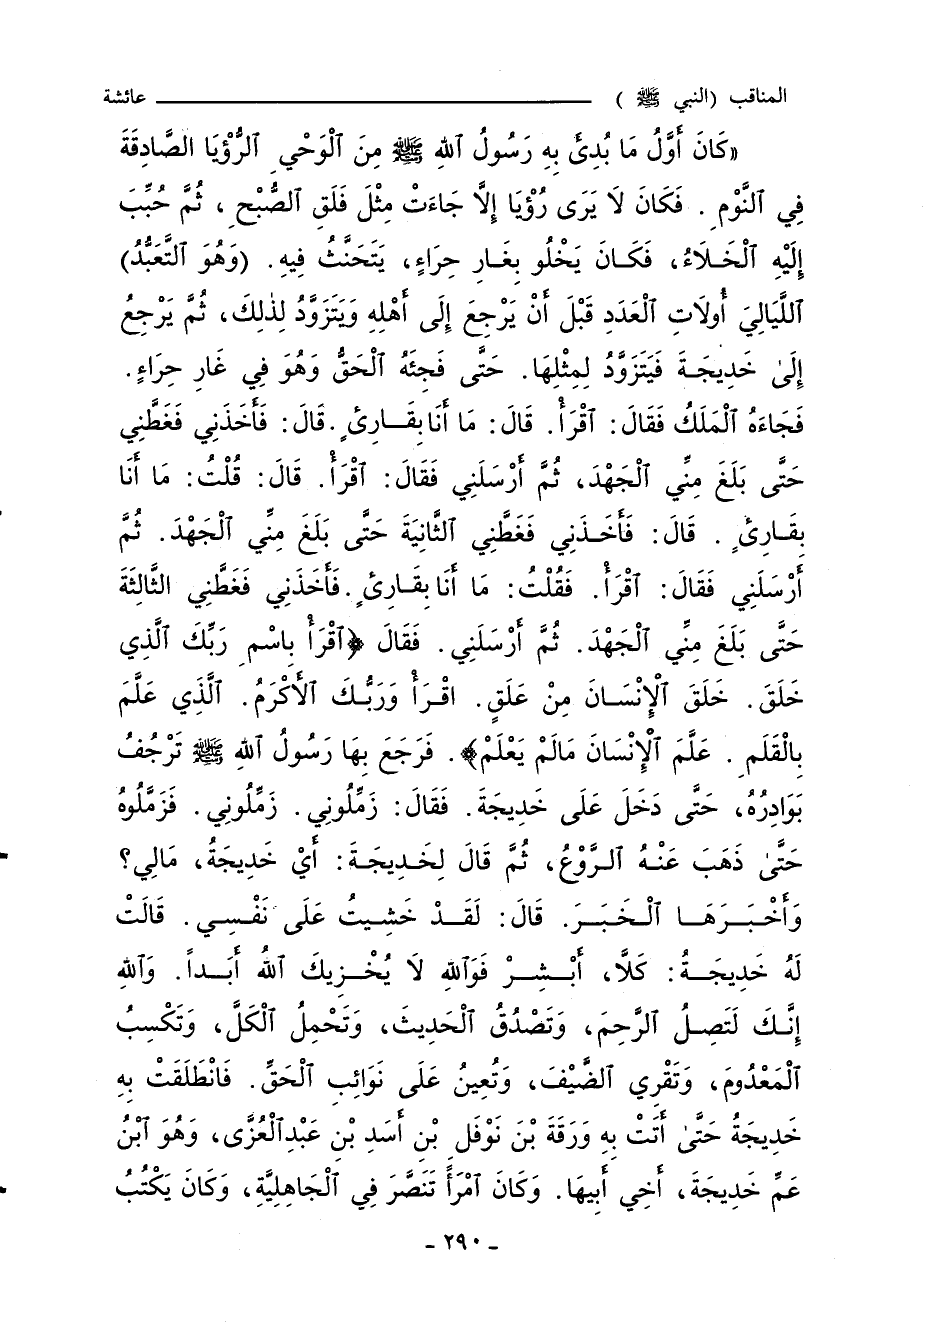 المناقب (النبي ﷺ) عائشة
«كَانَ أَوَّلُ مَا بُدِئَ بِهِ رَسُولُ ٱللهِ ﷺ مِنَ ٱلْوَحْيِ ٱلرُّؤْيَا ٱلصَّادِقَةَ
فِي ٱلنَّوْمِ . فَكَانَ لَا يَرَى رُؤْيَا إِلَّا جَاءَتْ مِثْلَ فَلَقِ ٱلصُّبْحِ ، ثُمَّ حُبِّبَ
إِلَيْهِ ٱلْخَلَاءُ، فَكَانَ يَخْلُو بِغَارِ حِرَاءٍ، يَتَحَنَّثُ فِيهِ. (وَهُوَ ٱلتَّعَبُّدُ)
ٱللَّيَالِيَ أُولَاتِ ٱلْعَدَدِ قَبْلَ أَنْ يَرْجِعَ إِلَى أَهْلِهِ وَيَتَزَوَّدُ لِذٰلِكَ، ثُمَّ يَرْجِعُ
إِلَىٰ خَدِيجَةَ فَيَتَزَوَّدُ لِمِثْلِهَا. حَتَّى فَجِئَهُ ٱلْحَقُّ وَهُوَ فِي غَارِ حِرَاءٍ.
فَجَاءَهُ ٱلْمَلَكُ فَقَالَ: ٱقْرَأْ. قَالَ: مَا أَنَا بِقَارِئٍ. قَالَ: فَأَخَذَنِي فَغَطَّنِي
حَتَّى بَلَغَ مِنِّي ٱلْجَهْدَ، ثُمَّ أَرْسَلَنِي فَقَالَ: ٱقْرَأْ. قَالَ: قُلْتُ: مَا أَنَا
بِقَارِئٍ . قَالَ: فَأَخَذَنِي فَغَطَّنِي ٱلثَّانِيَةَ حَتَّى بَلَغَ مِنِّي ٱلْجَهْدَ. ثُمَّ
أَرْسَلَنِي فَقَالَ: ٱقْرَأْ. فَقُلْتُ: مَا أَنَا بِقَارِئٍ. فَأَخَذَنِي فَغَطَّنِي ٱلثَّالِثَةَ
حَتَّى بَلَغَ مِنِّي ٱلْجَهْدَ. ثُمَّ أَرْسَلَنِي. فَقَالَ ﴿ٱقْرَأْ بِاسْمِ رَبِّكَ ٱلَّذِي
خَلَقَ. خَلَقَ ٱلْإِنْسَانَ مِنْ عَلَقٍ. اقْرَأْ وَرَبُّكَ ٱلْأَكْرَمُ. ٱلَّذِي عَلَّمَ
بِالْقَلَمِ . عَلَّمَ ٱلْإِنْسَانَ مَالَمْ يَعْلَمْ﴾. فَرَجَعَ بِهَا رَسُولُ ٱللهِ ﷺ تَرْجُفُ
بَوَادِرُهُ، حَتَّى دَخَلَ عَلَى خَدِيجَةَ. فَقَالَ: زَمِّلُونِي. زَمِّلُونِي. فَزَمَّلُوهُ
حَتَّىٰ ذَهَبَ عَنْهُ ٱلرَّوْعُ، ثُمَّ قَالَ لِخَدِيجَةَ: أَيْ خَدِيجَةُ، مَالِي؟
وَأَخْبَرَهَا ٱلْخَبَرَ. قَالَ: لَقَدْ خَشِيتُ عَلَى نَفْسِي. قَالَتْ
لَهُ خَدِيجَةُ: كَلَّا، أَبْشِرْ فَوَٱللهِ لَا يُخْزِيكَ ٱللهُ أَبَداً. وَٱللهِ
إِنَّكَ لَتَصِلُ ٱلرَّحِمَ، وَتَصْدُقُ ٱلْحَدِيثَ، وَتَحْمِلُ ٱلْكَلَّ، وَتَكْسِبُ
ٱلْمَعْدُومَ، وَتَقْرِي ٱلضَّيْفَ، وَتُعِينُ عَلَى نَوَائِبِ ٱلْحَقِّ. فَانْطَلَقَتْ بِهِ
خَدِيجَةُ حَتَّىٰ أَتَتْ بِهِ وَرَقَةَ بْنَ نَوْفَلِ بْنِ أَسَدِ بْنِ عَبْدِٱلْعُزَّى، وَهُوَ ٱبْنُ
عَمِّ خَدِيجَةَ، أَخِي أَبِيهَا. وَكَانَ ٱمْرَأً تَنَصَّرَ فِي ٱلْجَاهِلِيَّةِ، وَكَانَ يَكْتُبُ
- ٢٩٠ -